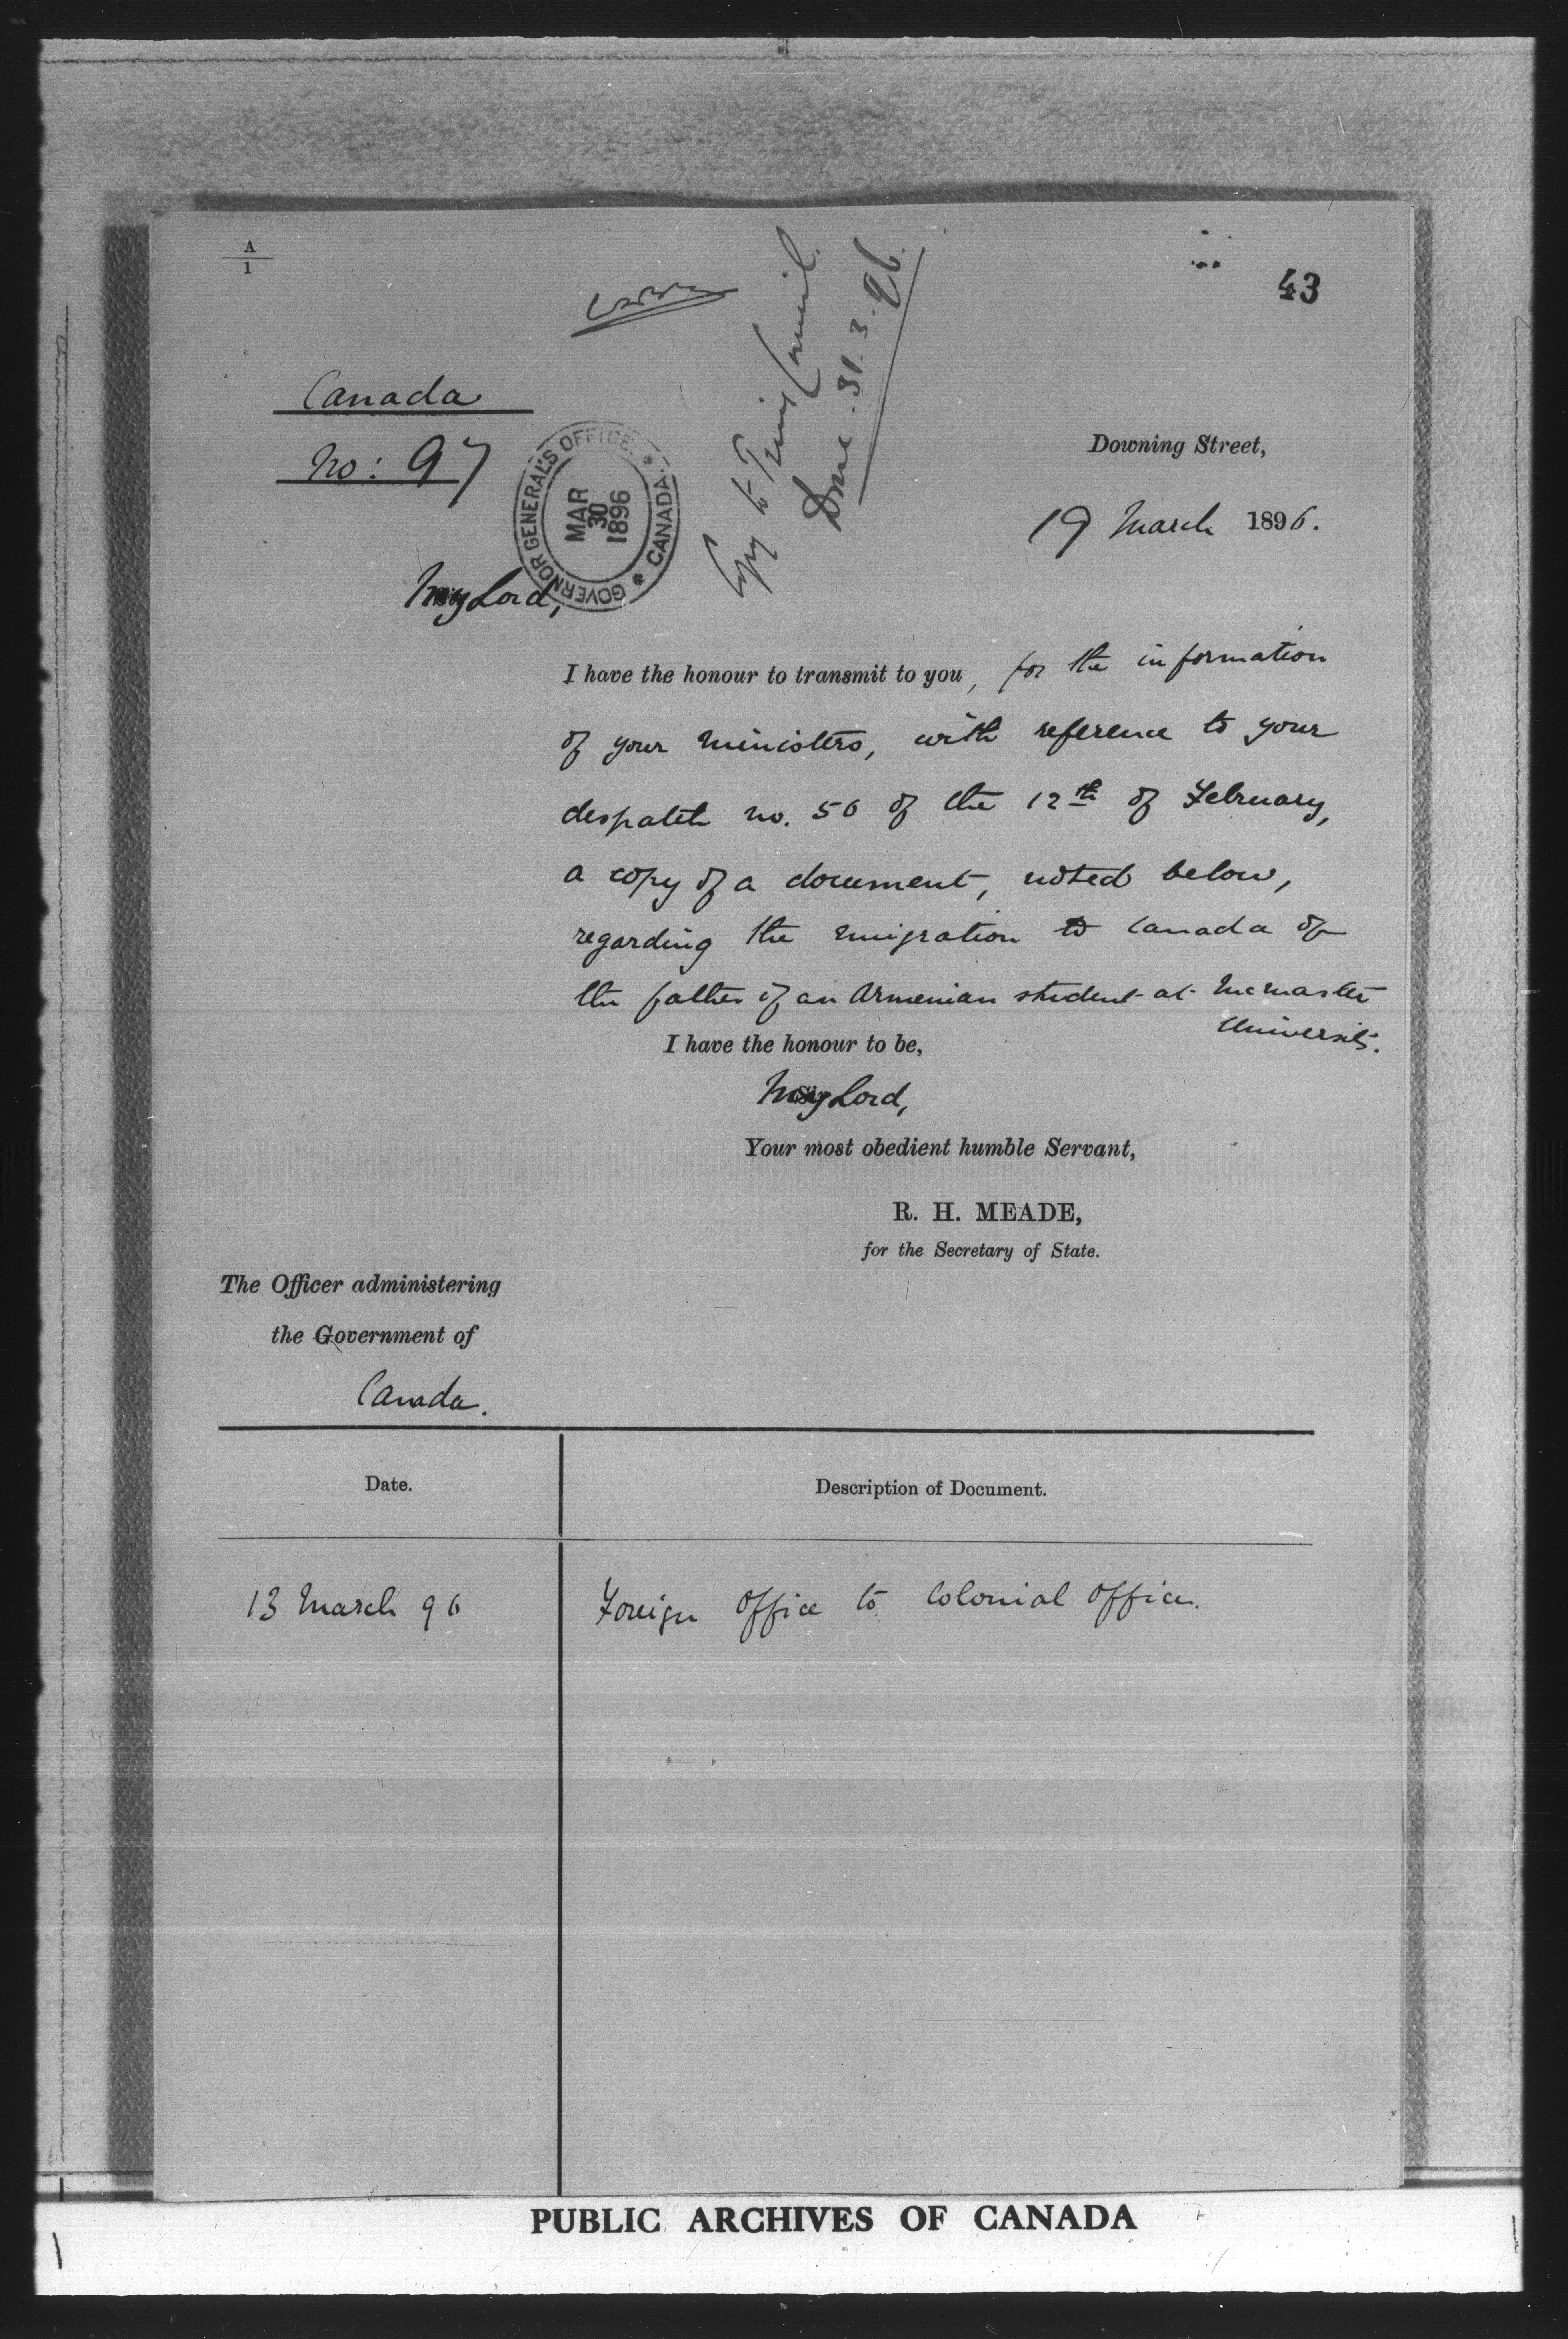 A
1
43
Copy to Privy Council.
Done. 31.3.96.
Canada
No: 97
GOVERNOR GENERAL'S OFFICE. * CANADA. *
MAR
30
1896
Downing Street,
19 March 1896.
My Lord,
I have the honour to transmit to you, for the information
of your Ministers, with reference to your
despatch no. 56 of the 12th of February,
a copy of a document, noted below,
regarding the emigration to Canada of
the father of an Armenian student at McMaster
University.
I have the honour to be,
My Lord,
Your most obedient humble Servant,
R. H. MEADE,
for the Secretary of State.
The Officer administering
the Government of
Canada.
Date.
Description of Document.
13 March 96
Foreign Office to Colonial Office.
PUBLIC ARCHIVES OF CANADA